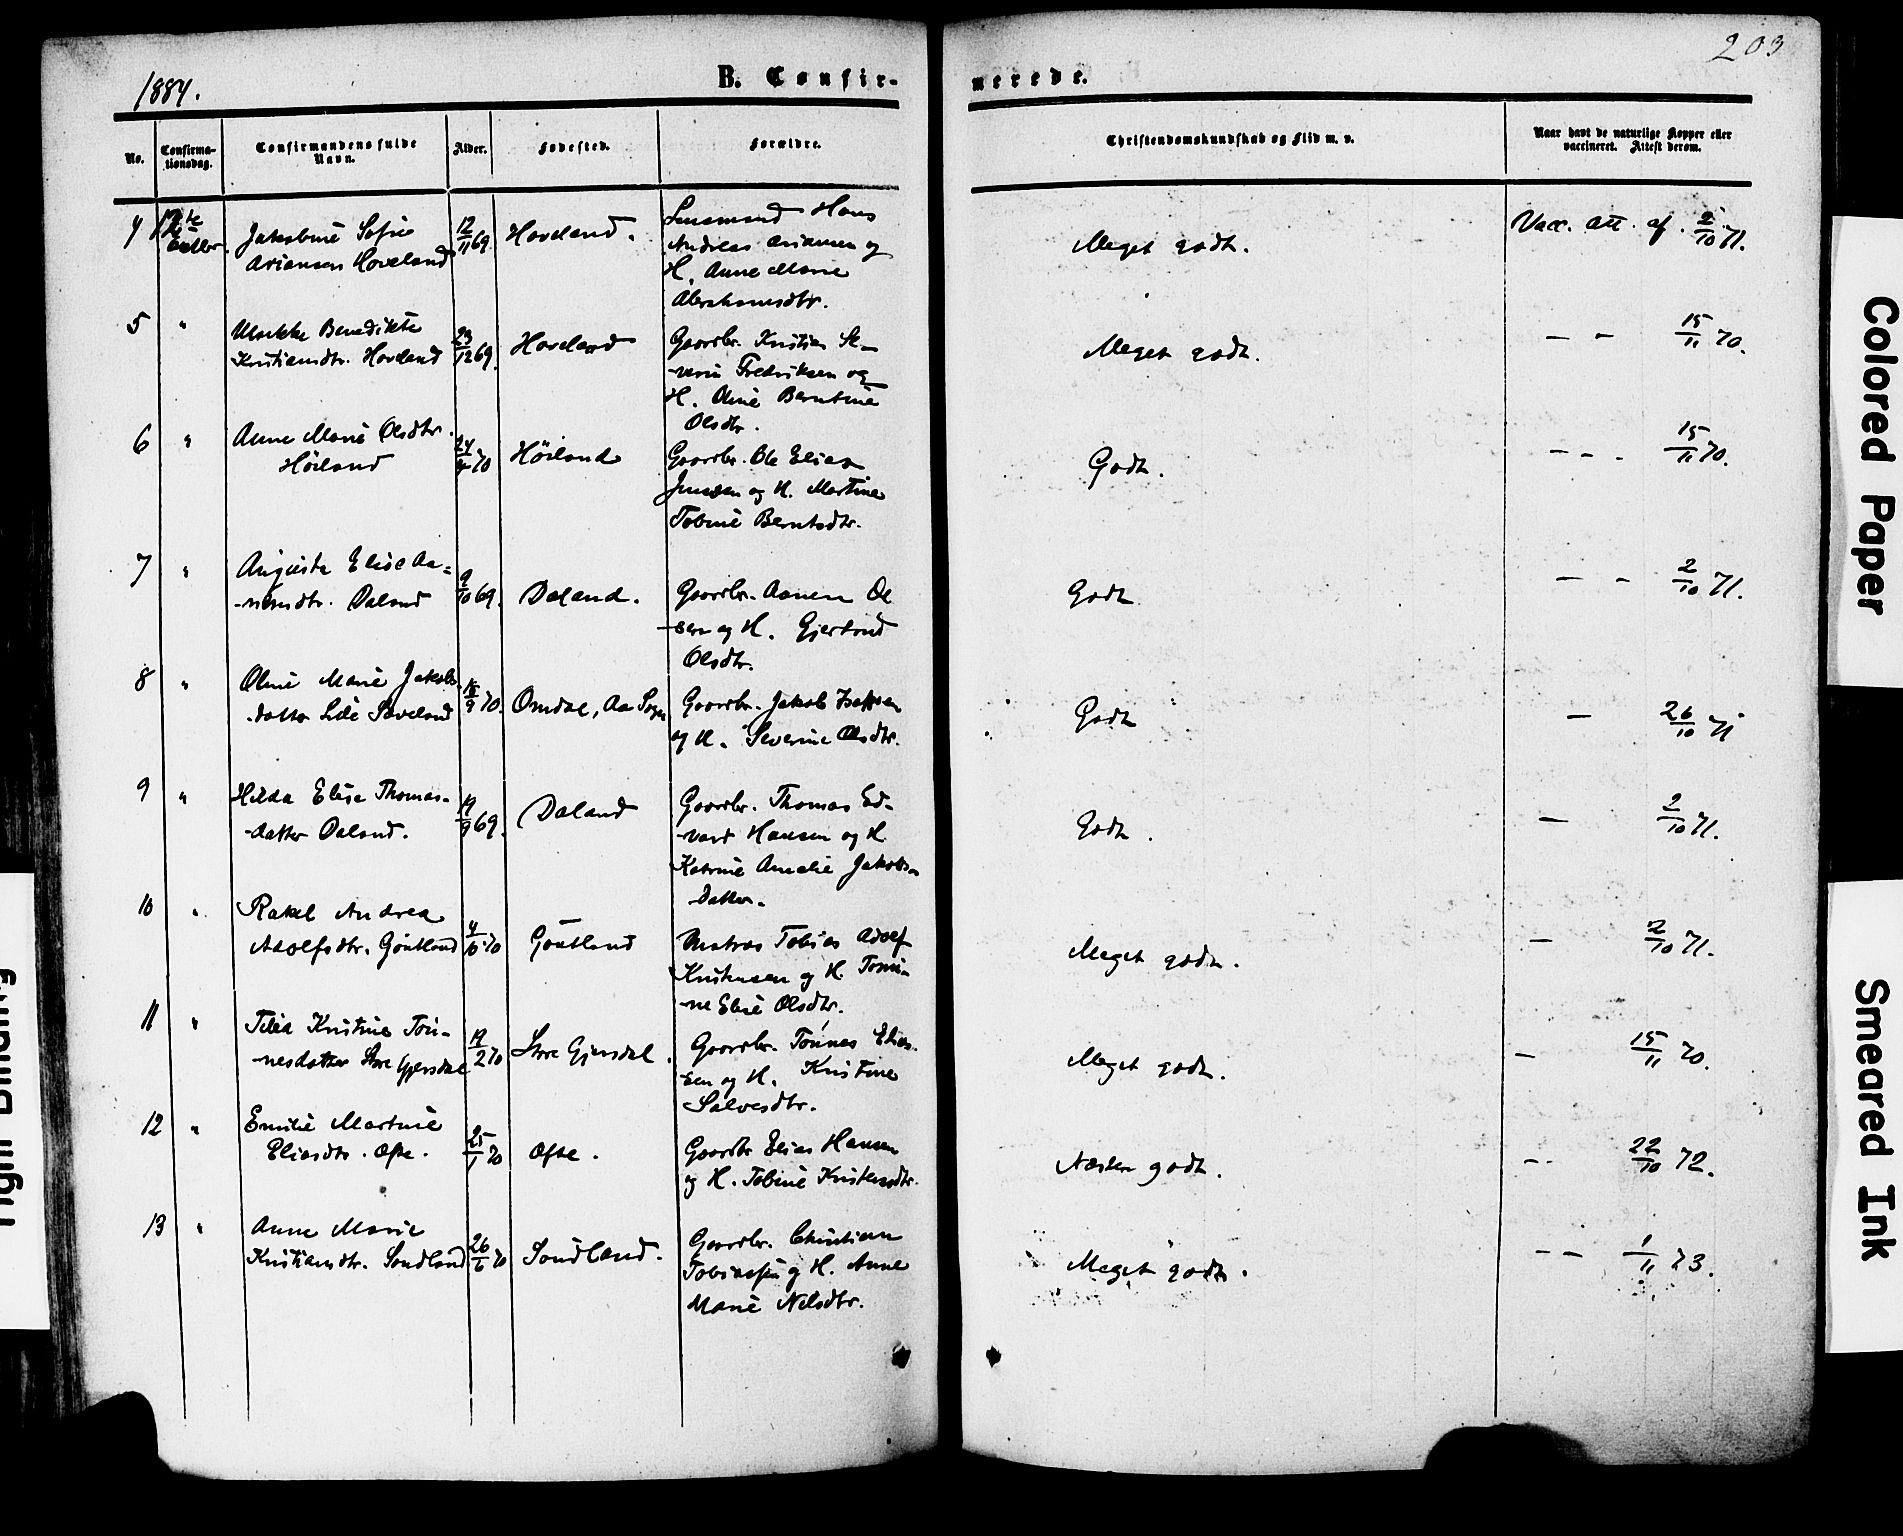 203
1884.
B. Confir-
merede.
No.
Confirma-
tionsdag.
Confirmandens fulde
Navn.
Alder.
Fødested.
Forældre.
Christendomskundskab og Flid m. v.
Naar havt de naturlige Kopper eller
vaccineret. Attest derom.
4
12te
Octbr.
Jakobine Sofie
Ariansen Hoveland
12/11 69.
Hoveland.
Hans
Andreas Ariansen og
H. Anne Marie
Abrahamsdtr.
Meget godt.
Vacc. att. af. 2/10 71.
5
"
Ulrikke Benedikte
Kristiansdtr. Hoveland
23/12 69.
Hoveland
Gaardbr. Kristian Se-
verin Fredriksen og
H. Oline Berntine
Olsdtr.
Meget godt.
— - 15/11 70.
6
"
Anne Marie Olsdtr.
Höiland
24/4 70
Höiland
Gaardbr. Ole Elias
Jensen og H. Martine
Tobine Berntsdtr.
Godt.
- - - 15/11 70.
7
"
Augusta Elise Aa=
-nensdtr. Daland
9/10 69.
Daland.
Gaardbr. Aanen Ol
-sen og H. Gjertrud
Olsdtr.
Godt
— - 2/10 71.
8
"
Oline Marie Jakobs
-datter Lille Søveland
70.
Omdal, Aa Sogn
Gaardbr. Jakob
og H. Severine Olsdtr.
Godt
— 26/10 71
9
"
Hilda Elise Thomas-
-datter Daland.
19/9 69.
Daland
Gaardbr. Thomas Ed-
-vard Hansen og H.
Katrine Amalie Jakobs-
datter.
Godt.
— 2/10 71.
10
"
Rakel Andrea
Adolfsdtr. Göutland
4/10 70
Göutland
Matros Tobias Adolf
Kristensen og H. Tomi-
-ne Elise Olsdtr.
Meget godt.
— 2/10 71.
11
"
Tilla Kristine Tön-
-nesdatter Store Gjersdal
19/2 70
Store Gjersdal.
Gaardbr. Tönnes Elias-
sen og H. Kristine
Salvesdtr.
Meget godt.
— 15/11 70.
12
"
Emilie Martine
Eliasdtr. Ofte.
25/1 70
Ofte.
Gaardbr Elias Hansen
og H. Tobine Kristensdtr.
Næsten godt.
-- 22/10 72.
13
"
Anne Marie
Kristiansdtr. Sundland
26/6 70
Sundland.
Gaardbr. Christian
Tobiassen og H. Anne
Marie Nilsdtr.
Meget godt.
-- 1/11 73.
Colored Paper
Smeared Ink
Tight Binding